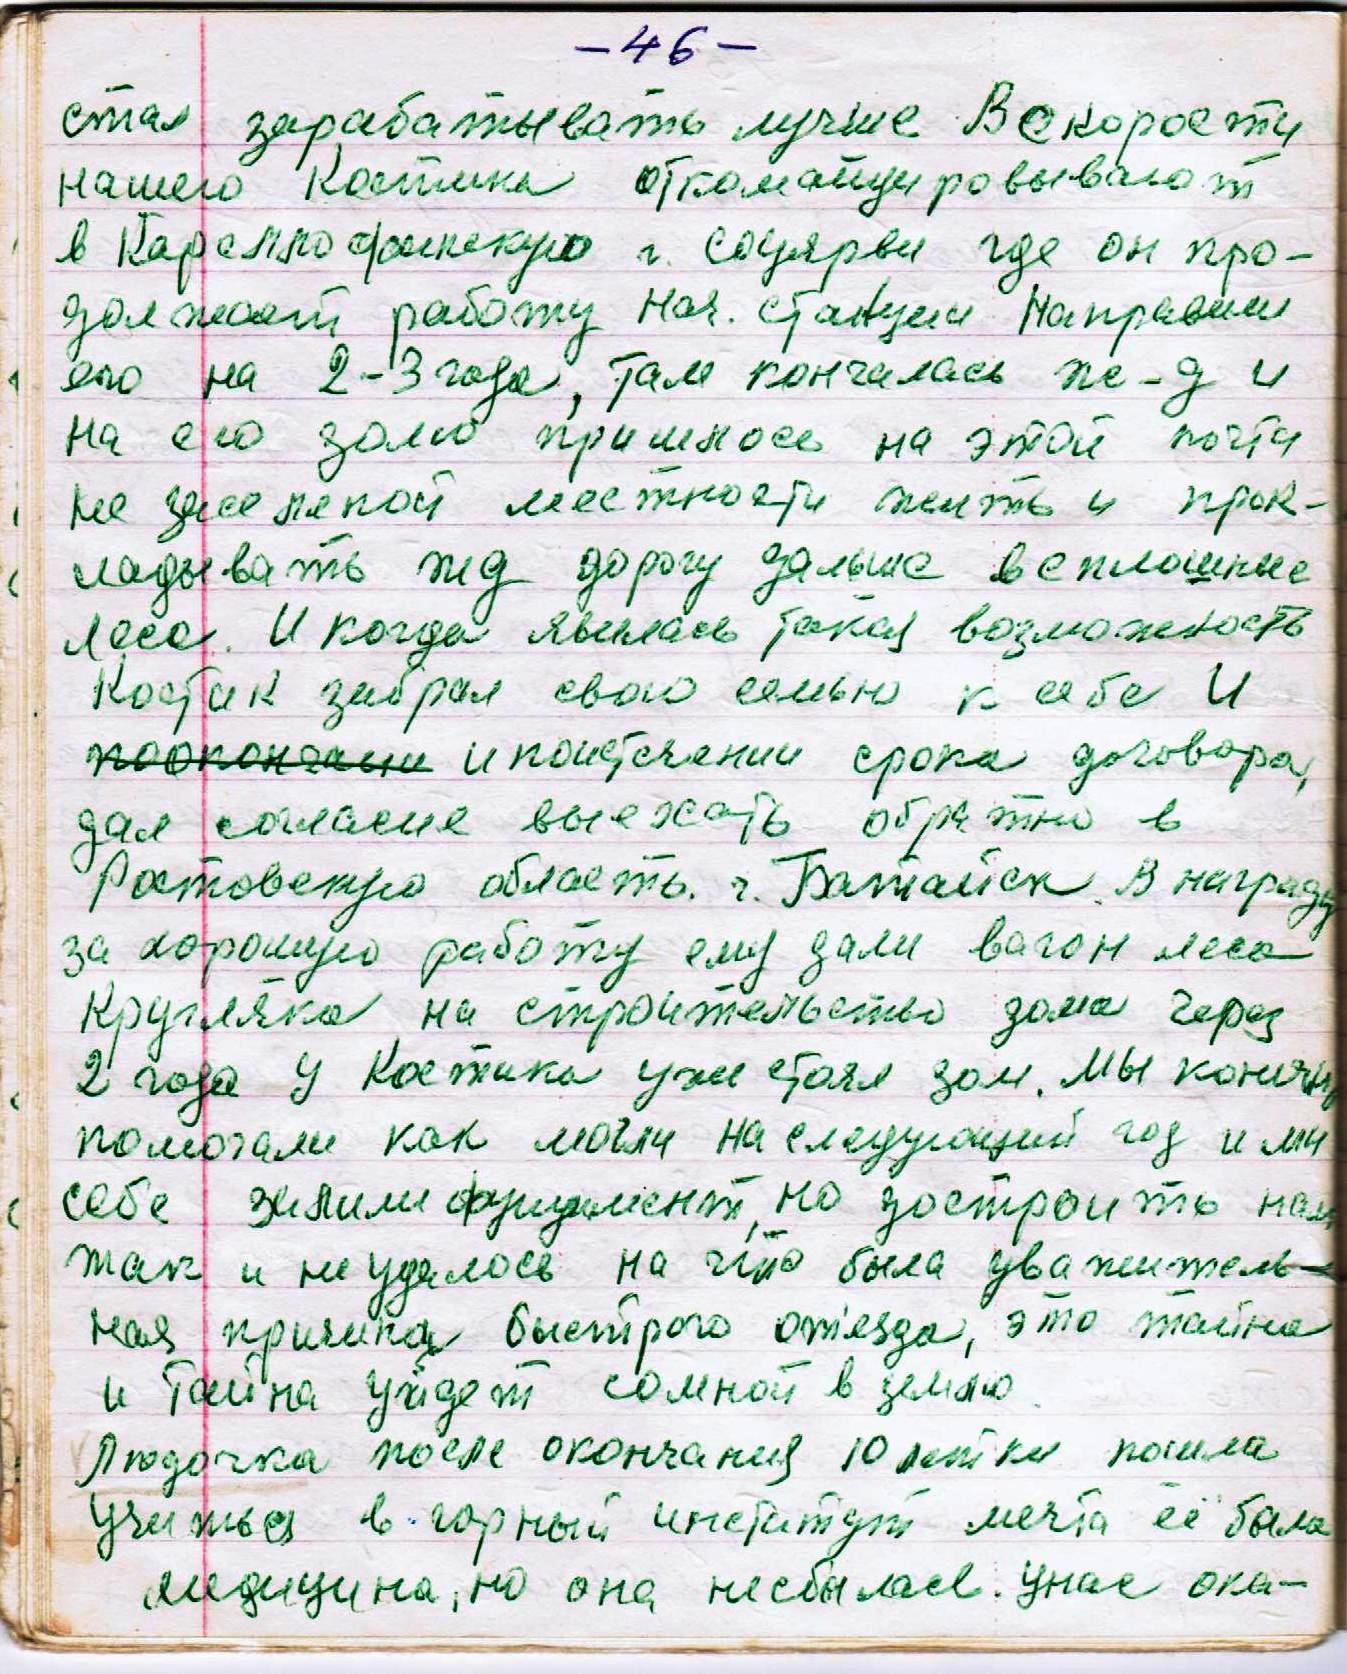 - 46 -
стал зарабатывать лучше Вскорости
нашего Костика откомандировывают
в Карелло финскую г. Соуярви где он про-
должает работу нач. станции Направили
его на 2-3 года, там кончалась же-д и
на его долю пришлось на этой почти
не заселеной местности жить и прок-
ладывать жд дорогу дальше в сплошные
леса. И когда явилась такая возможность
Костик забрал свою семью к себе И
поокончании и поистечении срока договора,
дал согласие выежать обратно в
Ростовскую область. г. Батайск. В награду
за хорошую работу ему дали вагон леса
Кругляка на строительство дома через
2 года у Костика уже стоял дом. Мы конечно
помогали как могли на следующий год и мы
себе залили фундамент, но достроить нам
так и не удалось на что была уважитель-
ная причина быстрого отъезда, это тайна
и тайна уйдет сомной в землю.
Людочка после окончания 10 летки пошла
учиться в горный институт мечта её была
медицина, но она несбылась. Унас ока-